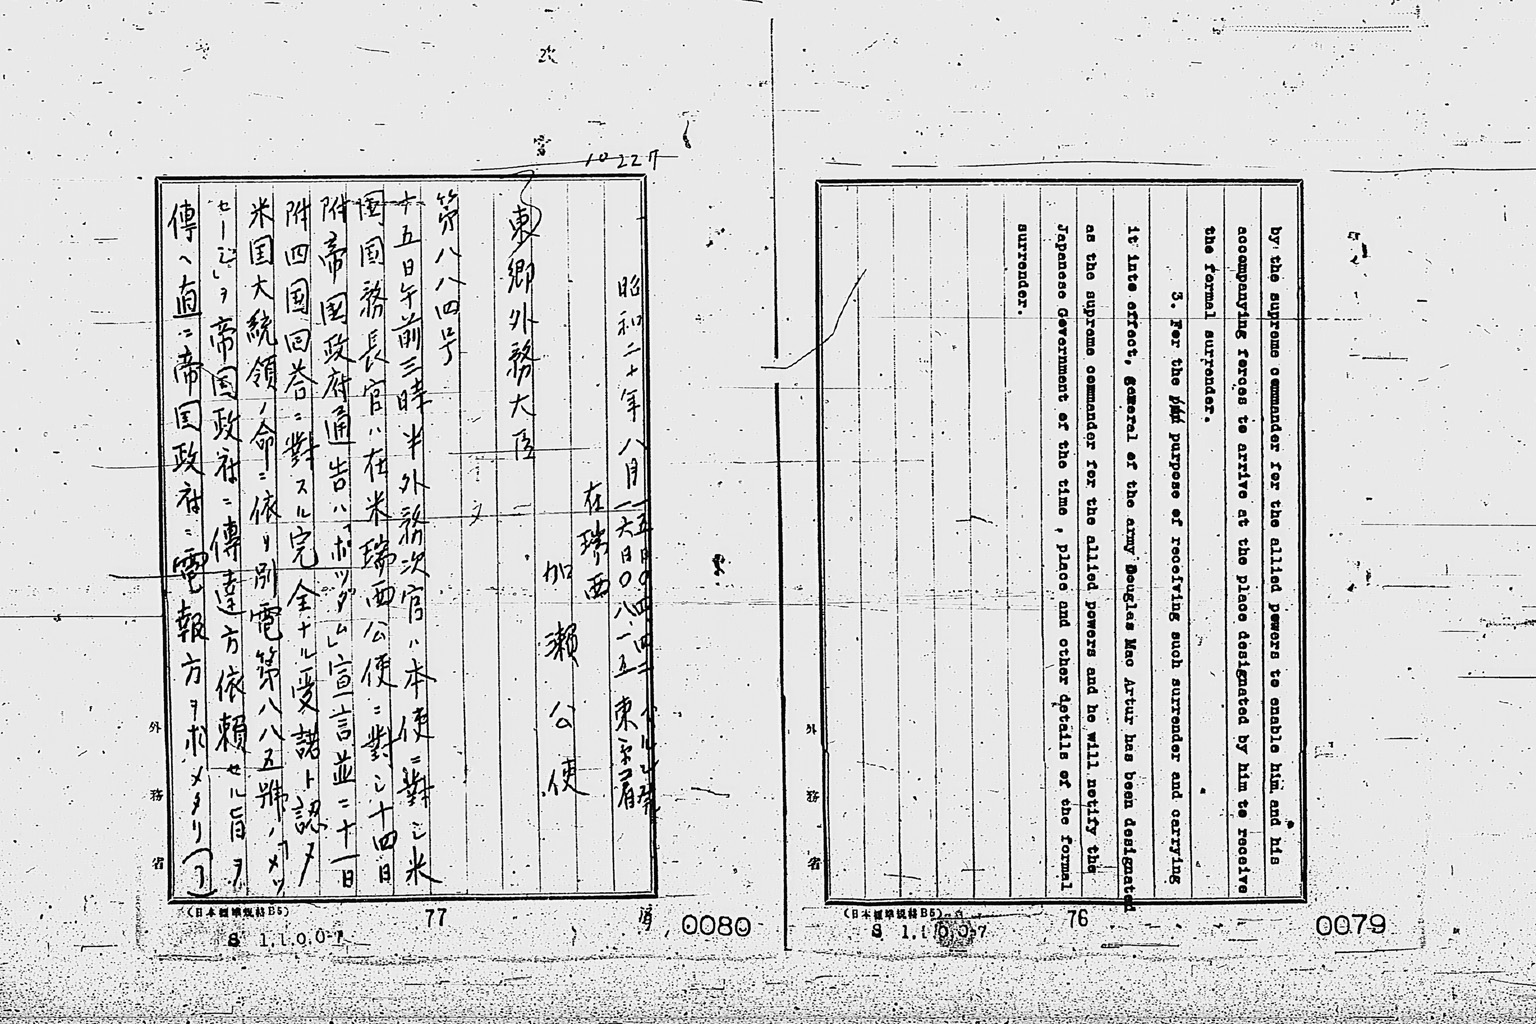 by the supreme commander for the allied powers to enable him and his
accompanying forces to arrive at the place designated by him to receive
the formal surrender.
3. For the purpose of receiving such surrender and carrying
it into effect, general of the army Douglas Mac Artur has been designated
as the supreme commander for the allied powers and he will notify the
Japanese Government of the time, place and other details of the formal
surrender.
外務省
(日本標準規格B5)
76
S 1.1.0.0-7
0079
10227
昭和二十年八月一五日〇四、四二 ベルン発
一六日〇八、一五 東京着
在瑞西
加瀬公使
東郷外務大臣
第八八四号
十五日午前三時半外務次官ハ本使ニ對シ米
国国務長官ハ在米瑞西公使ニ對シ十四日
附帝國政府通告ハ「ポツダム」宣言並ニ十一日
附四国回答ニ對スル完全ナル受諾ト認メ
米国大統領ノ命ニ依リ別電第八八五號ノ「メツ
セージ」ヲ帝国政府ニ傳達方依頼セル旨ヲ
傳ヘ直ニ帝国政府ニ電報方ヲ求メタリ(了)
外務省
(日本標準規格B5)
77
S 1.1.0.0-7
0080